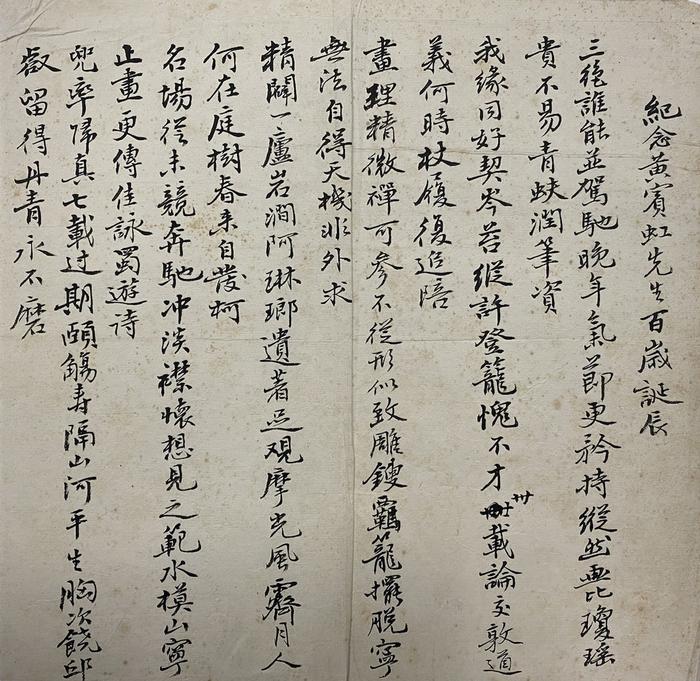 紀念黃賓虹先生百歲誕辰
三絕誰能並駕馳晚年氣節更矜持縱然無比瓊瑤
貴不易青蚨潤筆資
我緣同好契岑苔縱許登龍愧不才卅載論交敦道
義何時杖履復追陪
畫理精微禪可參不從形似致雕鎪羈籠擺脫寧
無法自得天機非外求
精闢一廬岩澗阿琳瑯遺著足觀摩光風霽月人
何在庭樹春來自發柯
名場從未競奔馳冲淡襟懷想見之範水模山寧
止畫更傳佳詠蜀遊詩
兜率歸真七載过期頤觴壽隔山河平生胸次饒邱
壑留得丹青永不磨